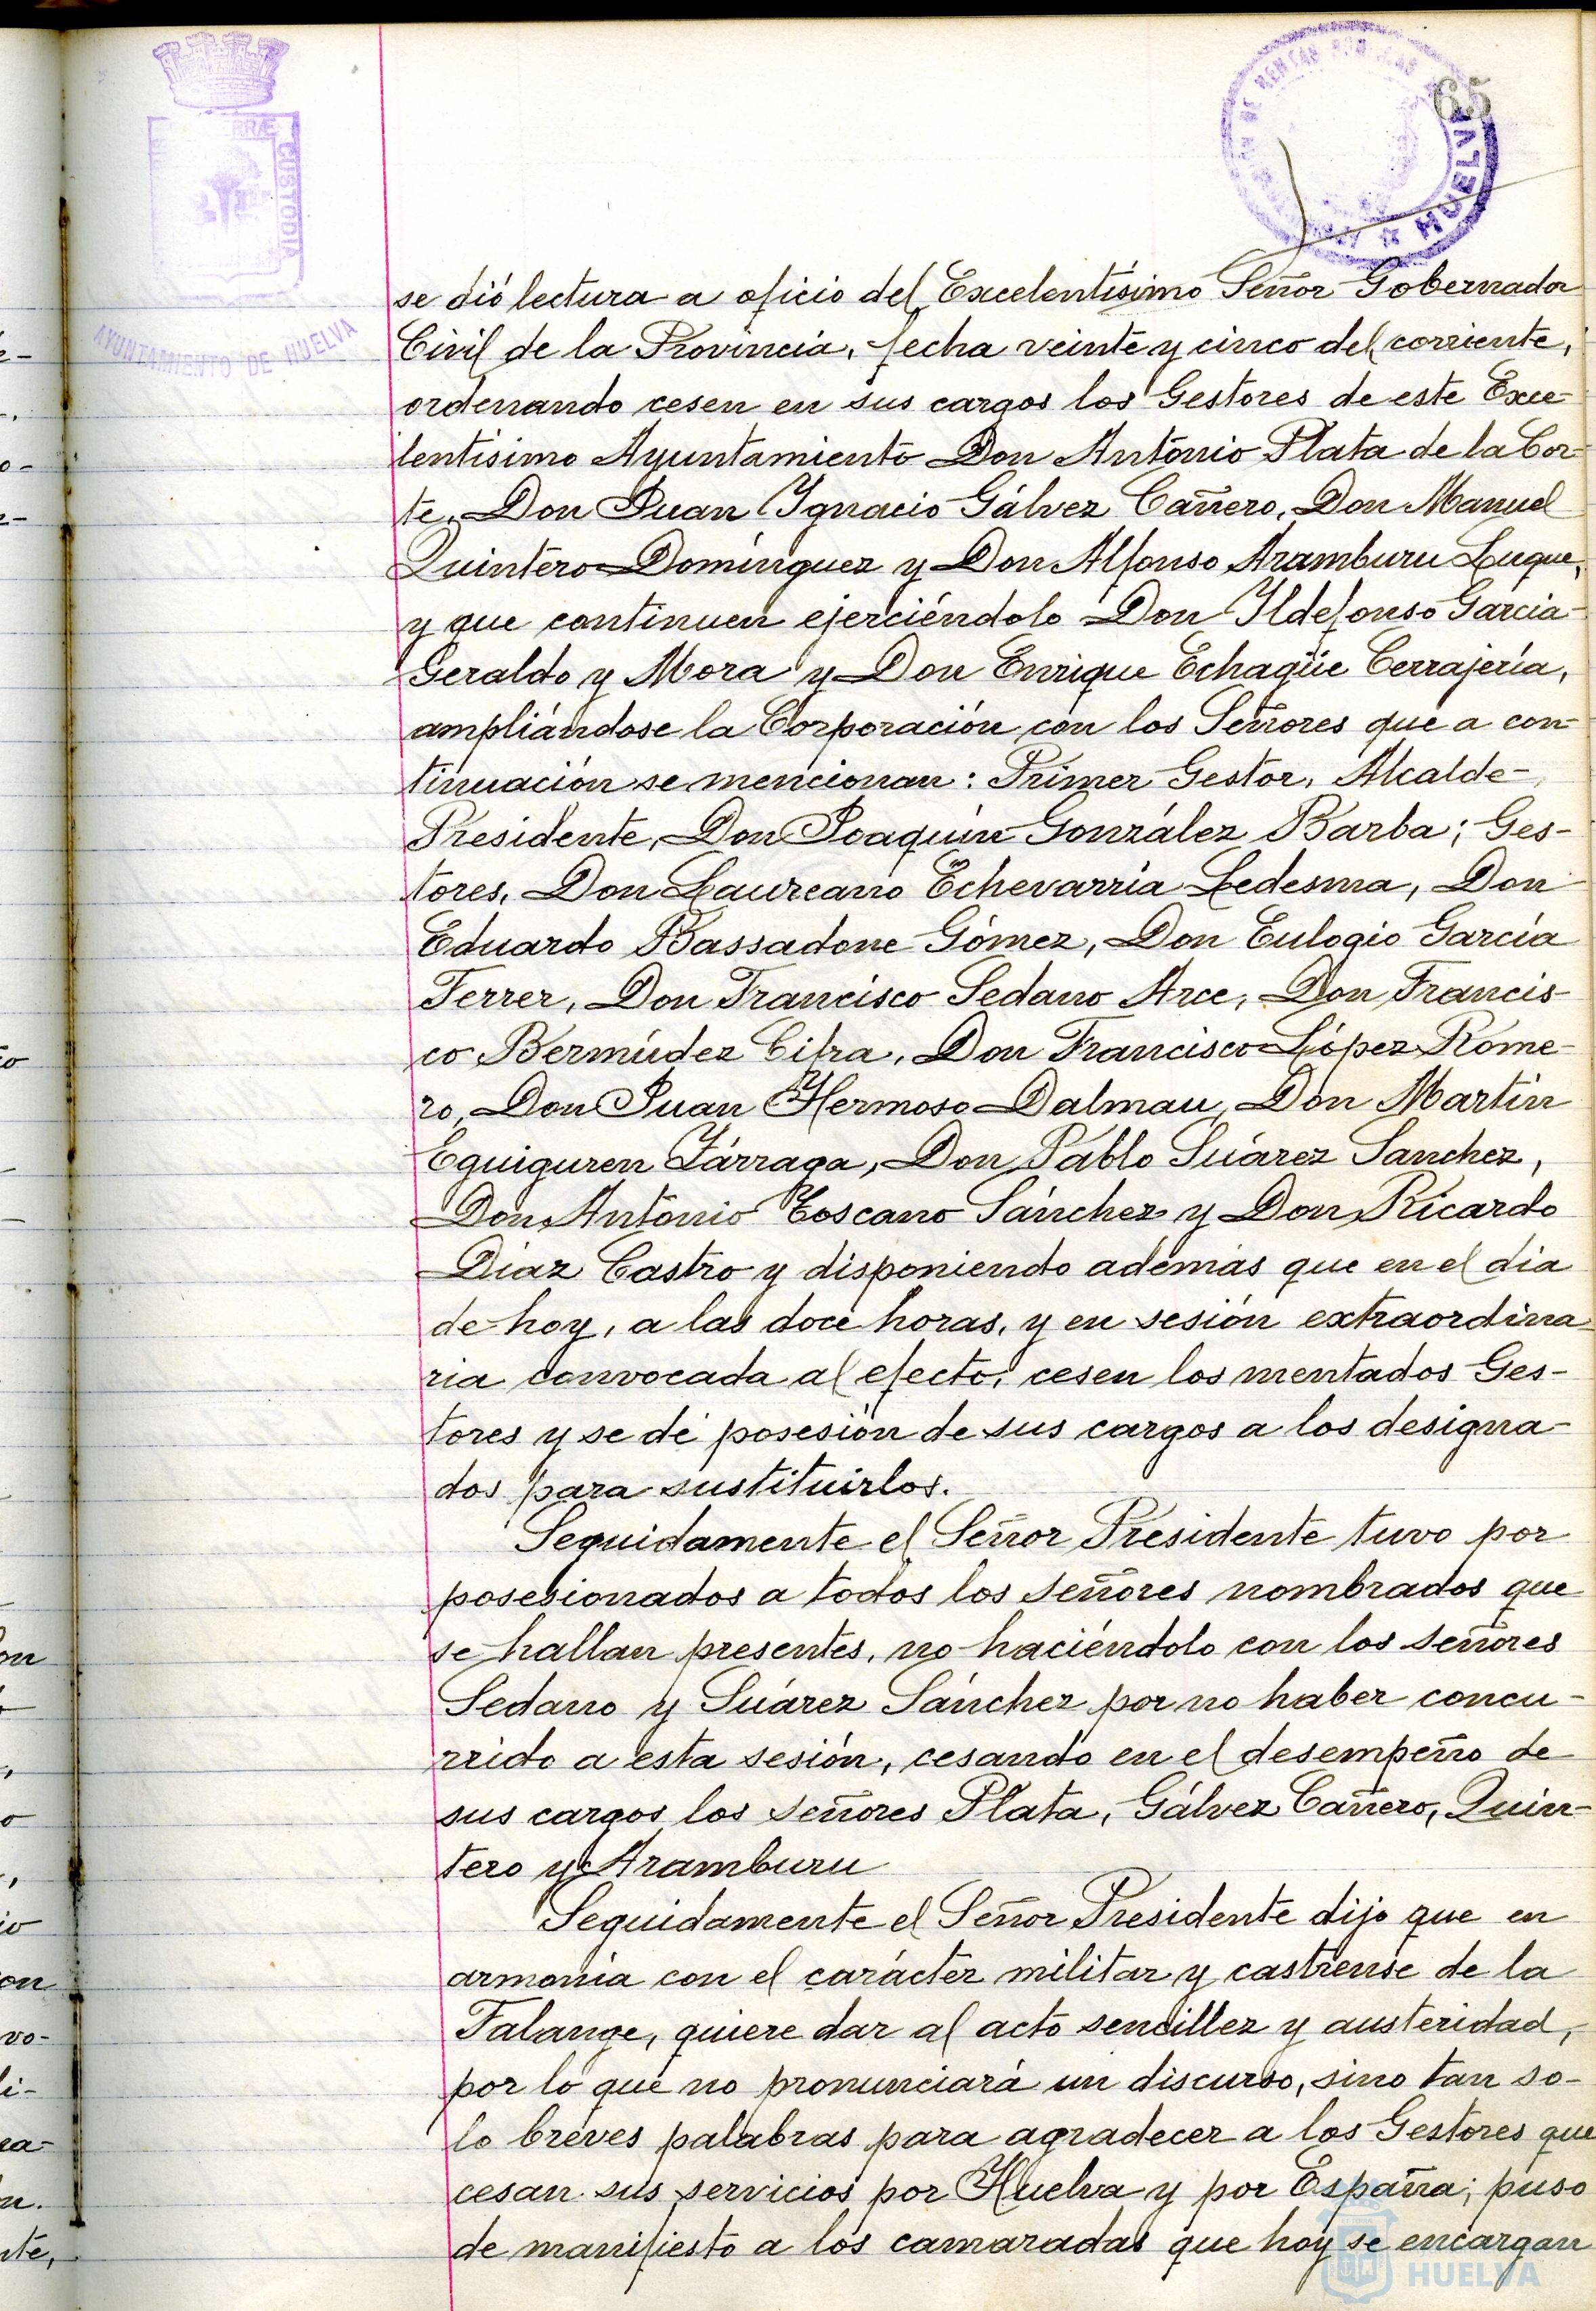 65
RRÆ
CUSTODIA
AYUNTAMIENTO DE HUELVA
DE RENTAS PUBLICAS
HUELVA
se dió lectura a oficio del Excelentísimo Señor Gobernador
Civil de la Provincia, fecha veinte y cinco del corriente,
ordenando cesen en sus cargos los Gestores de este Exce-
lentísimo Ayuntamiento Don Antonio Plata de la Cor-
te, Don Juan Ygnacio Gálvez Cañero, Don Manuel
Quintero Domínguez y Don Alfonso Aramburu Luque,
y que continuen ejerciéndolo Don Yldefonso Garcia-
Geraldo y Mora y Don Enrique Echagüe Cerrajería,
ampliándose la Corporación con los Señores que a con-
tinuación se mencionan: Primer Gestor, Alcalde-
Presidente, Don Joaquín González Barba; Ges-
tores, Don Laureano Echevarría Ledesma, Don
Eduardo Bassadone Gómez, Don Eulogio García
Ferrer, Don Francisco Sedano Arce, Don Francis-
co Bermúdez Cifra, Don Francisco López Rome-
ro, Don Juan Hermoso Dalmau, Don Martin
Eguiguren Zárraga, Don Pablo Suárez Sanchez,
Don Antonio Toscano Sánchez y Don Ricardo
Diaz Castro y disponiendo además que en el dia
de hoy, a las doce horas, y en sesión extraordina-
ria convocada al efecto, cesen los mentados Ges-
tores y se dé posesión de sus cargos a los designa-
dos para sustituirlos.
Seguidamente el Señor Presidente tuvo por
posesionados a todos los señores nombrados que
se hallan presentes, no haciéndolo con los señores
Sedano y Suárez Sánchez por no haber concu-
rrido a esta sesión, cesando en el desempeño de
sus cargos los señores Plata, Gálvez Cañero, Quin-
tero y Aramburu
Seguidamente el Señor Presidente dijo que en
armonía con el carácter militar y castrense de la
Falange, quiere dar al acto sencillez y austeridad,
por lo que no pronunciará un discurso, sino tan so-
lo breves palabras para agradecer a los Gestores que
cesan sus servicios por Huelva y por España; puso
de manifiesto a los camaradas que hoy se encargan
HUELVA